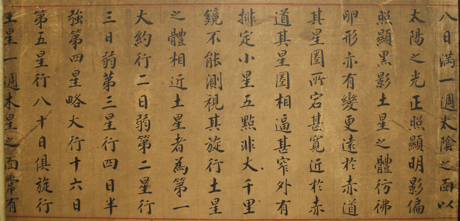 八日滿一週太陰之面以
太陽之光正照顯明影偏
照顯黑影土星之體彷彿
卵形亦有變更遠於赤道
其星圈所宕甚寬近於赤
道其星圈相逼甚窄外有
排定小星五點非大千里
鏡不能測視其旋行土星
之體相近土星者為第一
大約行二日弱第二星行
三日弱第三星行四日半
強第四星略火行十六日
第五星行八十日俱旋行
土星一週木星之面常有